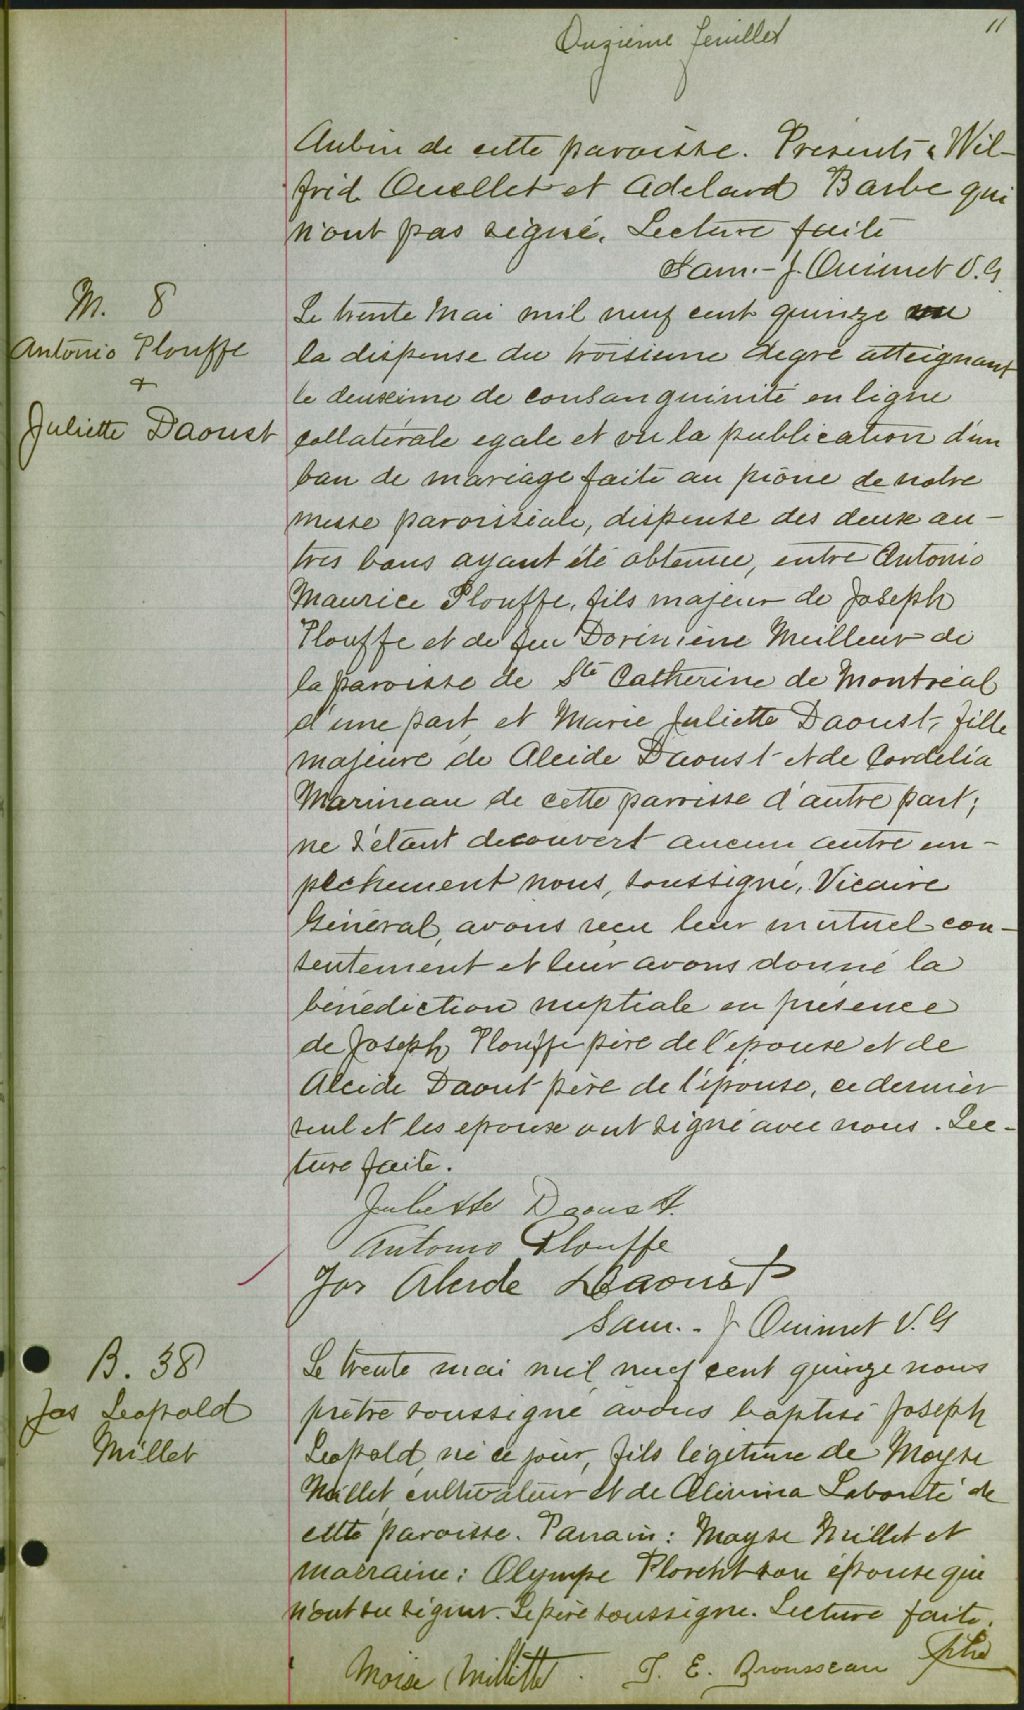 Onzième feuillet
11
Aubin de cette paroisse. Présents Wil-
frid Ouellet et Adelard Barbe qui
n'ont pas signé. Lecture faite
Sam.- J. Ouimet V.G
M. 8
Antonio Plouffe
+
Juliette Daoust
Le trente Mai mil neuf cent quinze vu
la dispense du troisieme degré atteignant
le deuxième de consanguinité en ligne
collatérale egale et vu la publication d'un
ban de mariage faite au prône de notre
messe paroissiale, dispense des deux au-
tres bans ayant été obtenue, entre Antonio
Maurice Plouffe, fils majeur de Joseph
Plouffe et de feu Dorimène Meilleur de
la paroisse de Ste Catherine de Montréal
d'une part, et Marie Juliette Daoust, fille
majeure de Alcide Daoust et de Cordelia
Marineau de cette paroisse d'autre part;
ne s'étant decouvert aucun autre em-
pêchement nous, soussigné, Vicaire
Général, avons reçu leur mutuel con-
sentement et leur avons donné la
bénédiction nuptiale en présence
de Joseph Plouffe père de l'épouse et de
Alcide Daout père de l'épouse, ce dernier
seul et les epoux ont signé avec nous. Lec-
ture faite.
Juliette Daoust.
Antonio Plouffe
Jos Alcide Daoust
Sam.- J Ouimet V.G
B. 38
Jos Leopold
Millet
Le trente mai mil neuf cent quinze nous
prêtre soussigné avons baptisé Joseph
Leopold, né ce jour, fils légitime de Moyse
Millet, cultivateur et de Labonté de
cette paroisse. Parrain: Moyse Millet et
marraine: Olympe son épouse qui
n'ont su signer. Le père soussigné. Lecture faite.
Moise Millette. J. E. Brousseau ptre